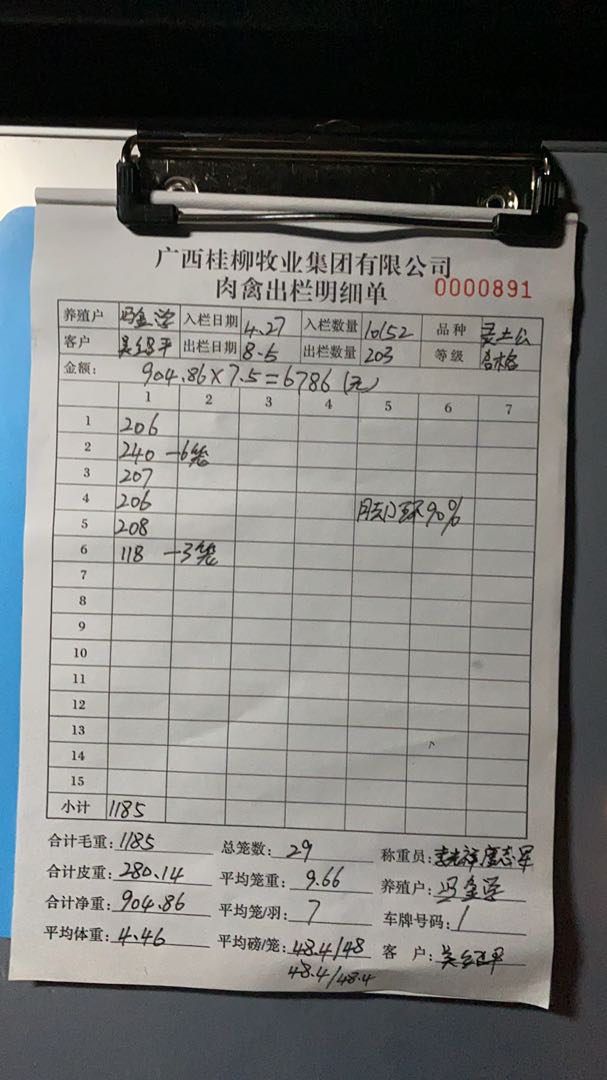 广西桂柳牧业集团有限公司
肉禽出栏明细单 0000891
养殖户 冯金学 入栏日期 4.27 入栏数量 10152 品种 灵土公
客户 出栏日期 8.5 出栏数量 203 等级 合格
金额: 904.86×7.5=6786 (元)
1 2 3 4 5 6 7
1 206
2 240 -6笼
3 207
4 206 90%
5 208
6 118 -3笼
7
8
9
10
11
12
13
14
15
小计 1185
合计毛重: 1185 总笼数: 29 称重员:
合计皮重: 280.14 平均笼重: 9.66 养殖户: 冯金学
合计净重: 904.86 平均笼/羽: 7 车牌号码: /
平均体重: 4.46 平均磅/笼: 48.4/48 客户:
48.4/48.4